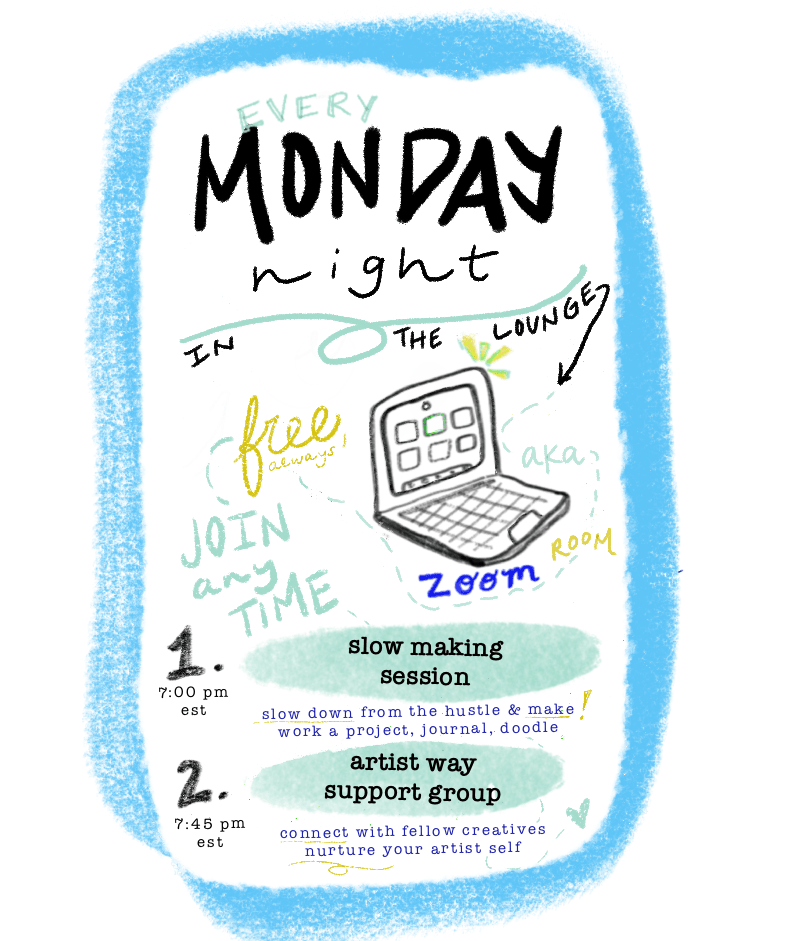 EVERY
MONDAY
night
IN THE LOUNGE
free
always!
aka
JOIN
any
TIME
ROOM
zoom
1.
7:00 pm
est
slow making
session
slow down from the hustle & make!
work a project, journal, doodle
2.
7:45 pm
est
artist way
support group
connect with fellow creatives
nurture your artist self